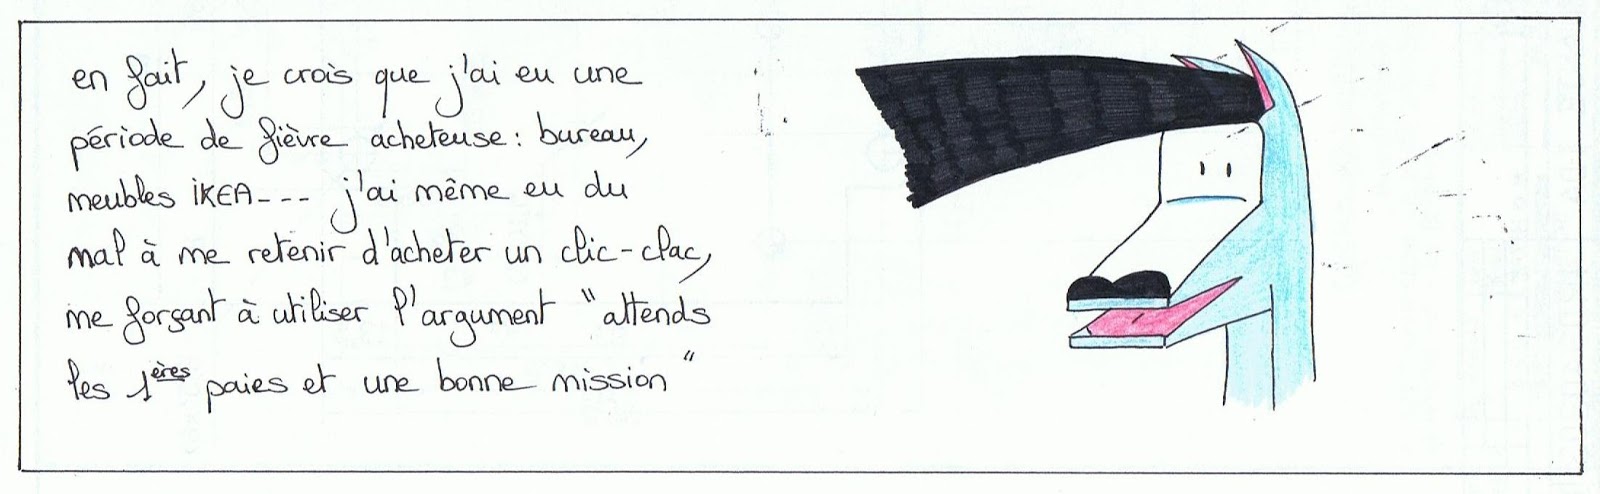 en fait, je crois que j'ai eu une
période de fièvre acheteuse : bureau,
meubles IKEA--- j'ai même eu du
mal à me retenir d'acheter un clic-clac,
me forçant à utiliser l'argument "attends
les 1ères paies et une bonne mission"